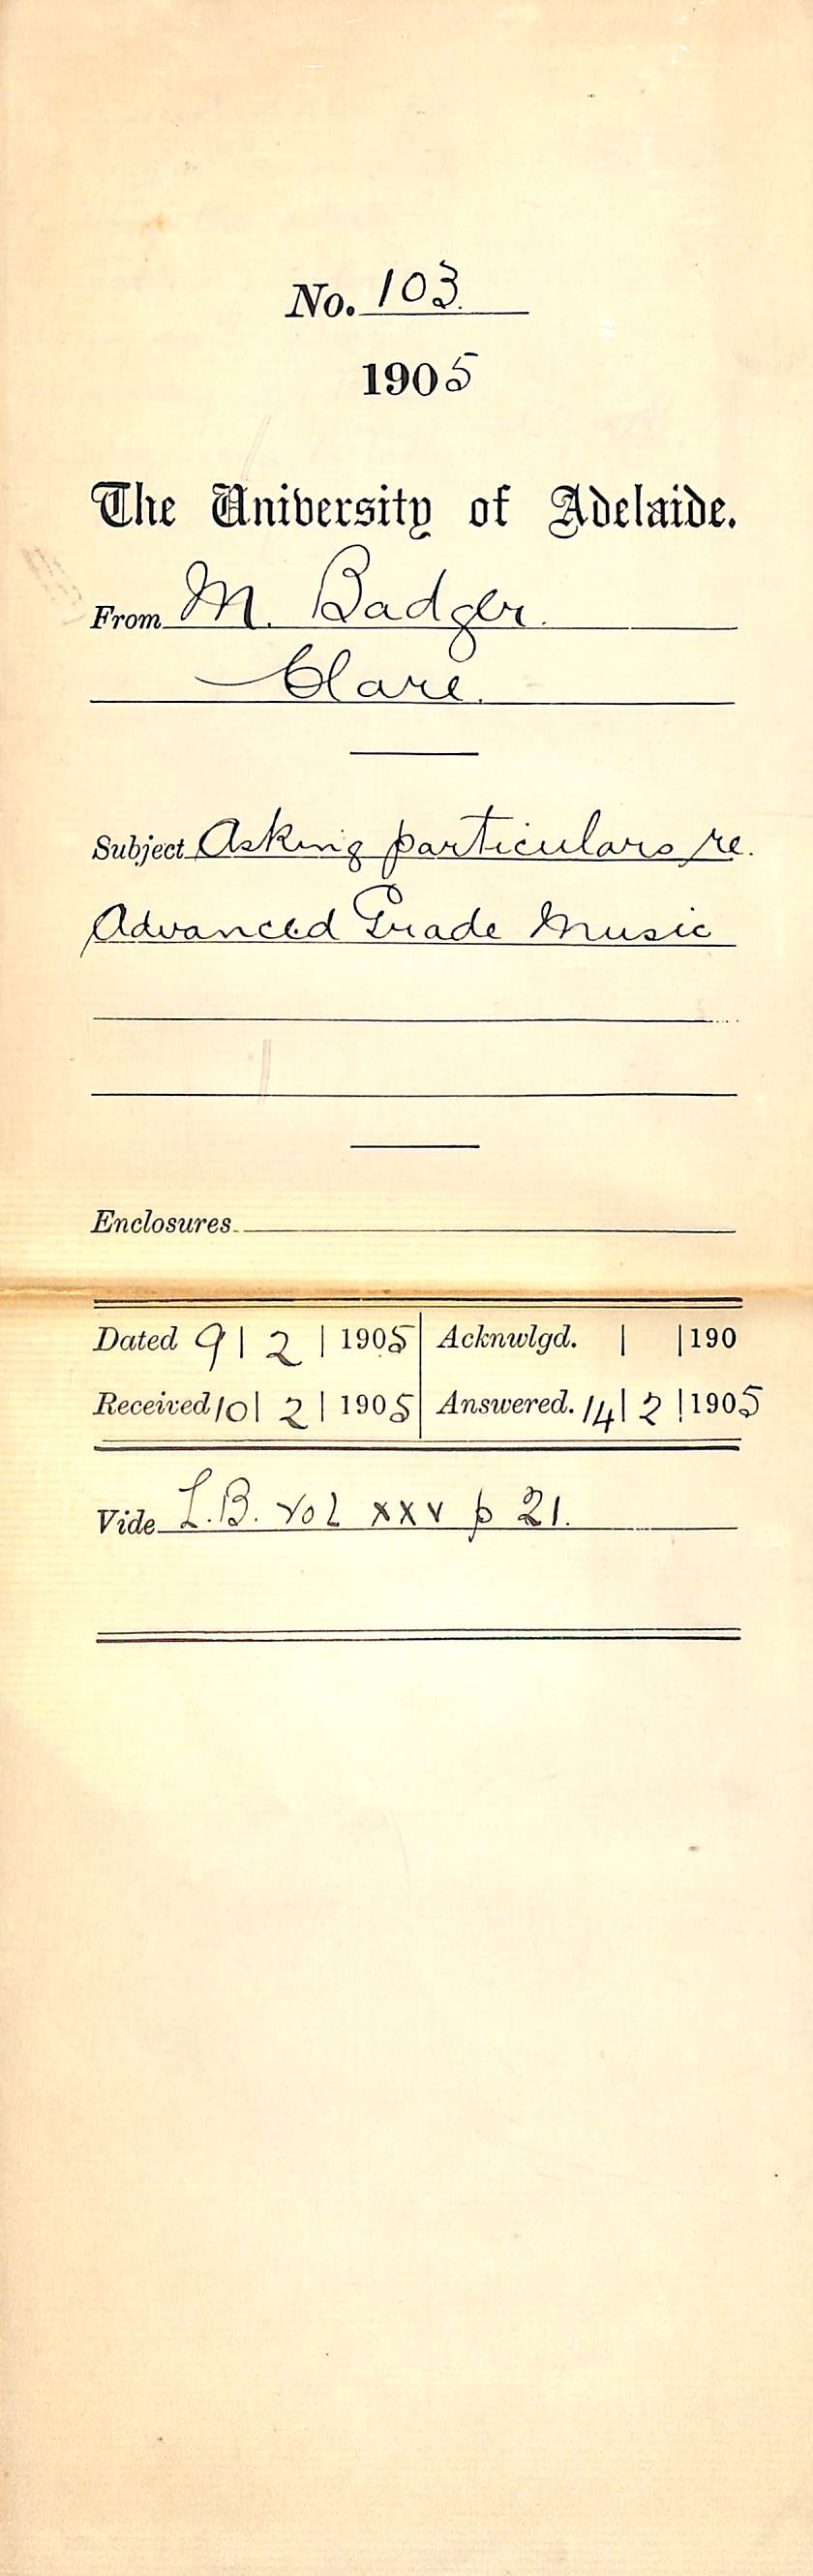 No. 103.
1905
The University of Adelaide.
From M. Badger.
Clare.
Subject Asking particulars re.
Advanced Grade Music
Enclosures
Dated 9 | 2 | 1905 | Acknwlgd. | | 190
Received 10 | 2 | 1905 | Answered. 14 | 2 | 1905
Vide L.B. Vol xxv p 21.